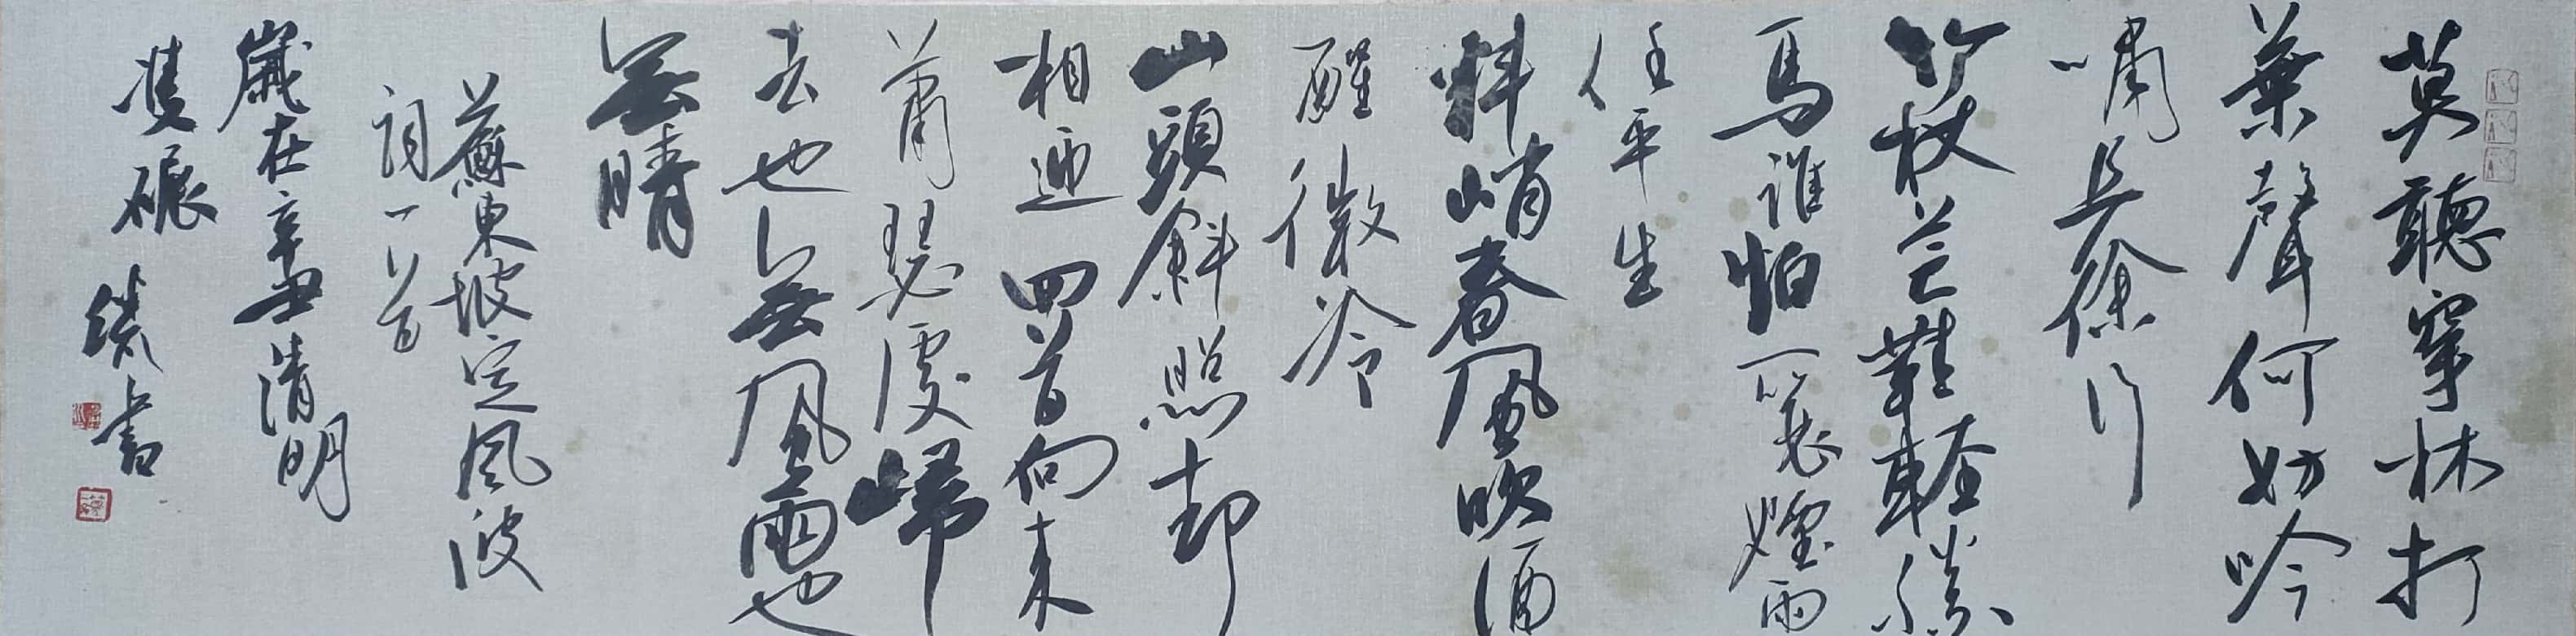 莫聽穿林打
葉聲何妨吟
嘯且徐行
竹杖芒鞋輕勝
馬誰怕一蓑煙雨
任平生
料峭春風吹酒
醒微冷
山頭斜照却
相迎回首向来
蕭瑟處歸
去也無風雨也
無晴
蘇東坡定風波
詞一首
歲在辛丑清明
隻碾 書